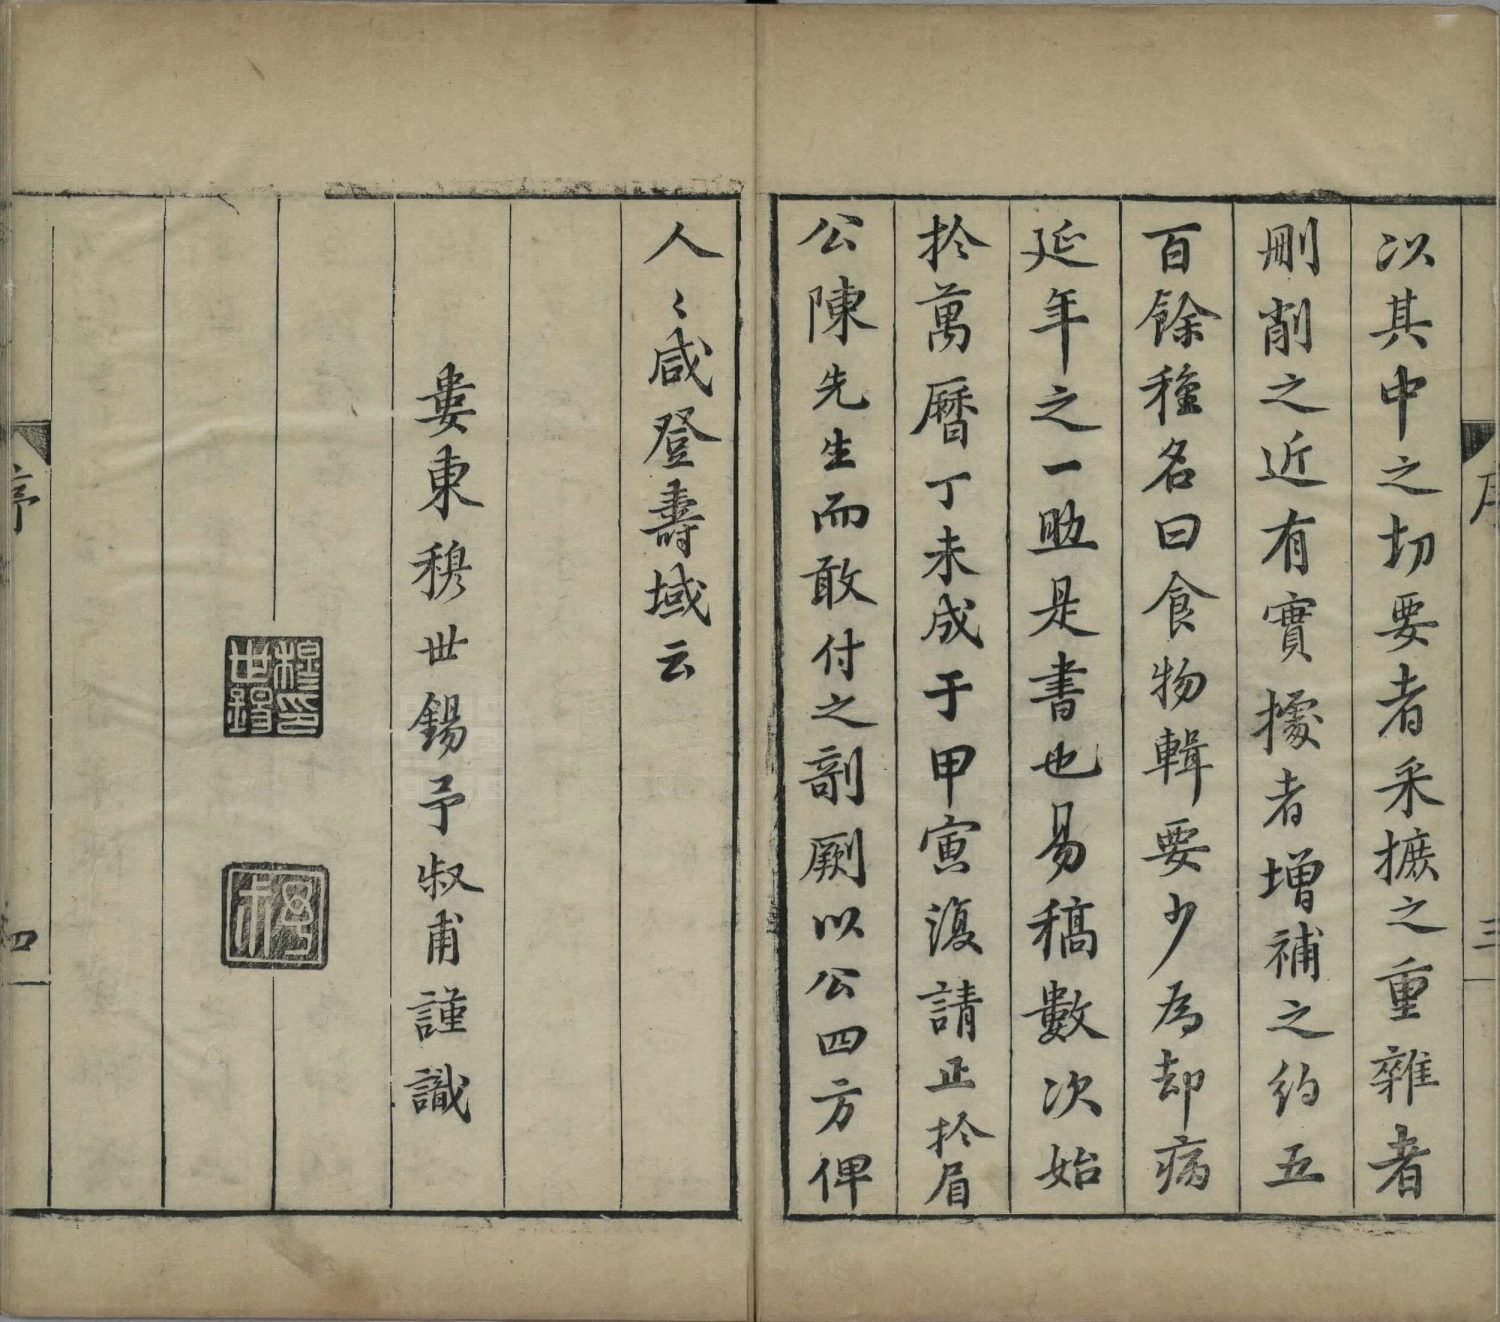 序
三
以其中之切要者采摭之重雜者
刪削之近有實據者增補之約五
百餘種名曰食物輯要少為却病
延年之一助是書也易稿數次始
於萬曆丁未成于甲寅復請正於眉
公陳先生而敢付之剞劂以公四方俾
人〻咸登壽域云
婁東穆世錫予叔甫謹識
穆印世錫
序
四